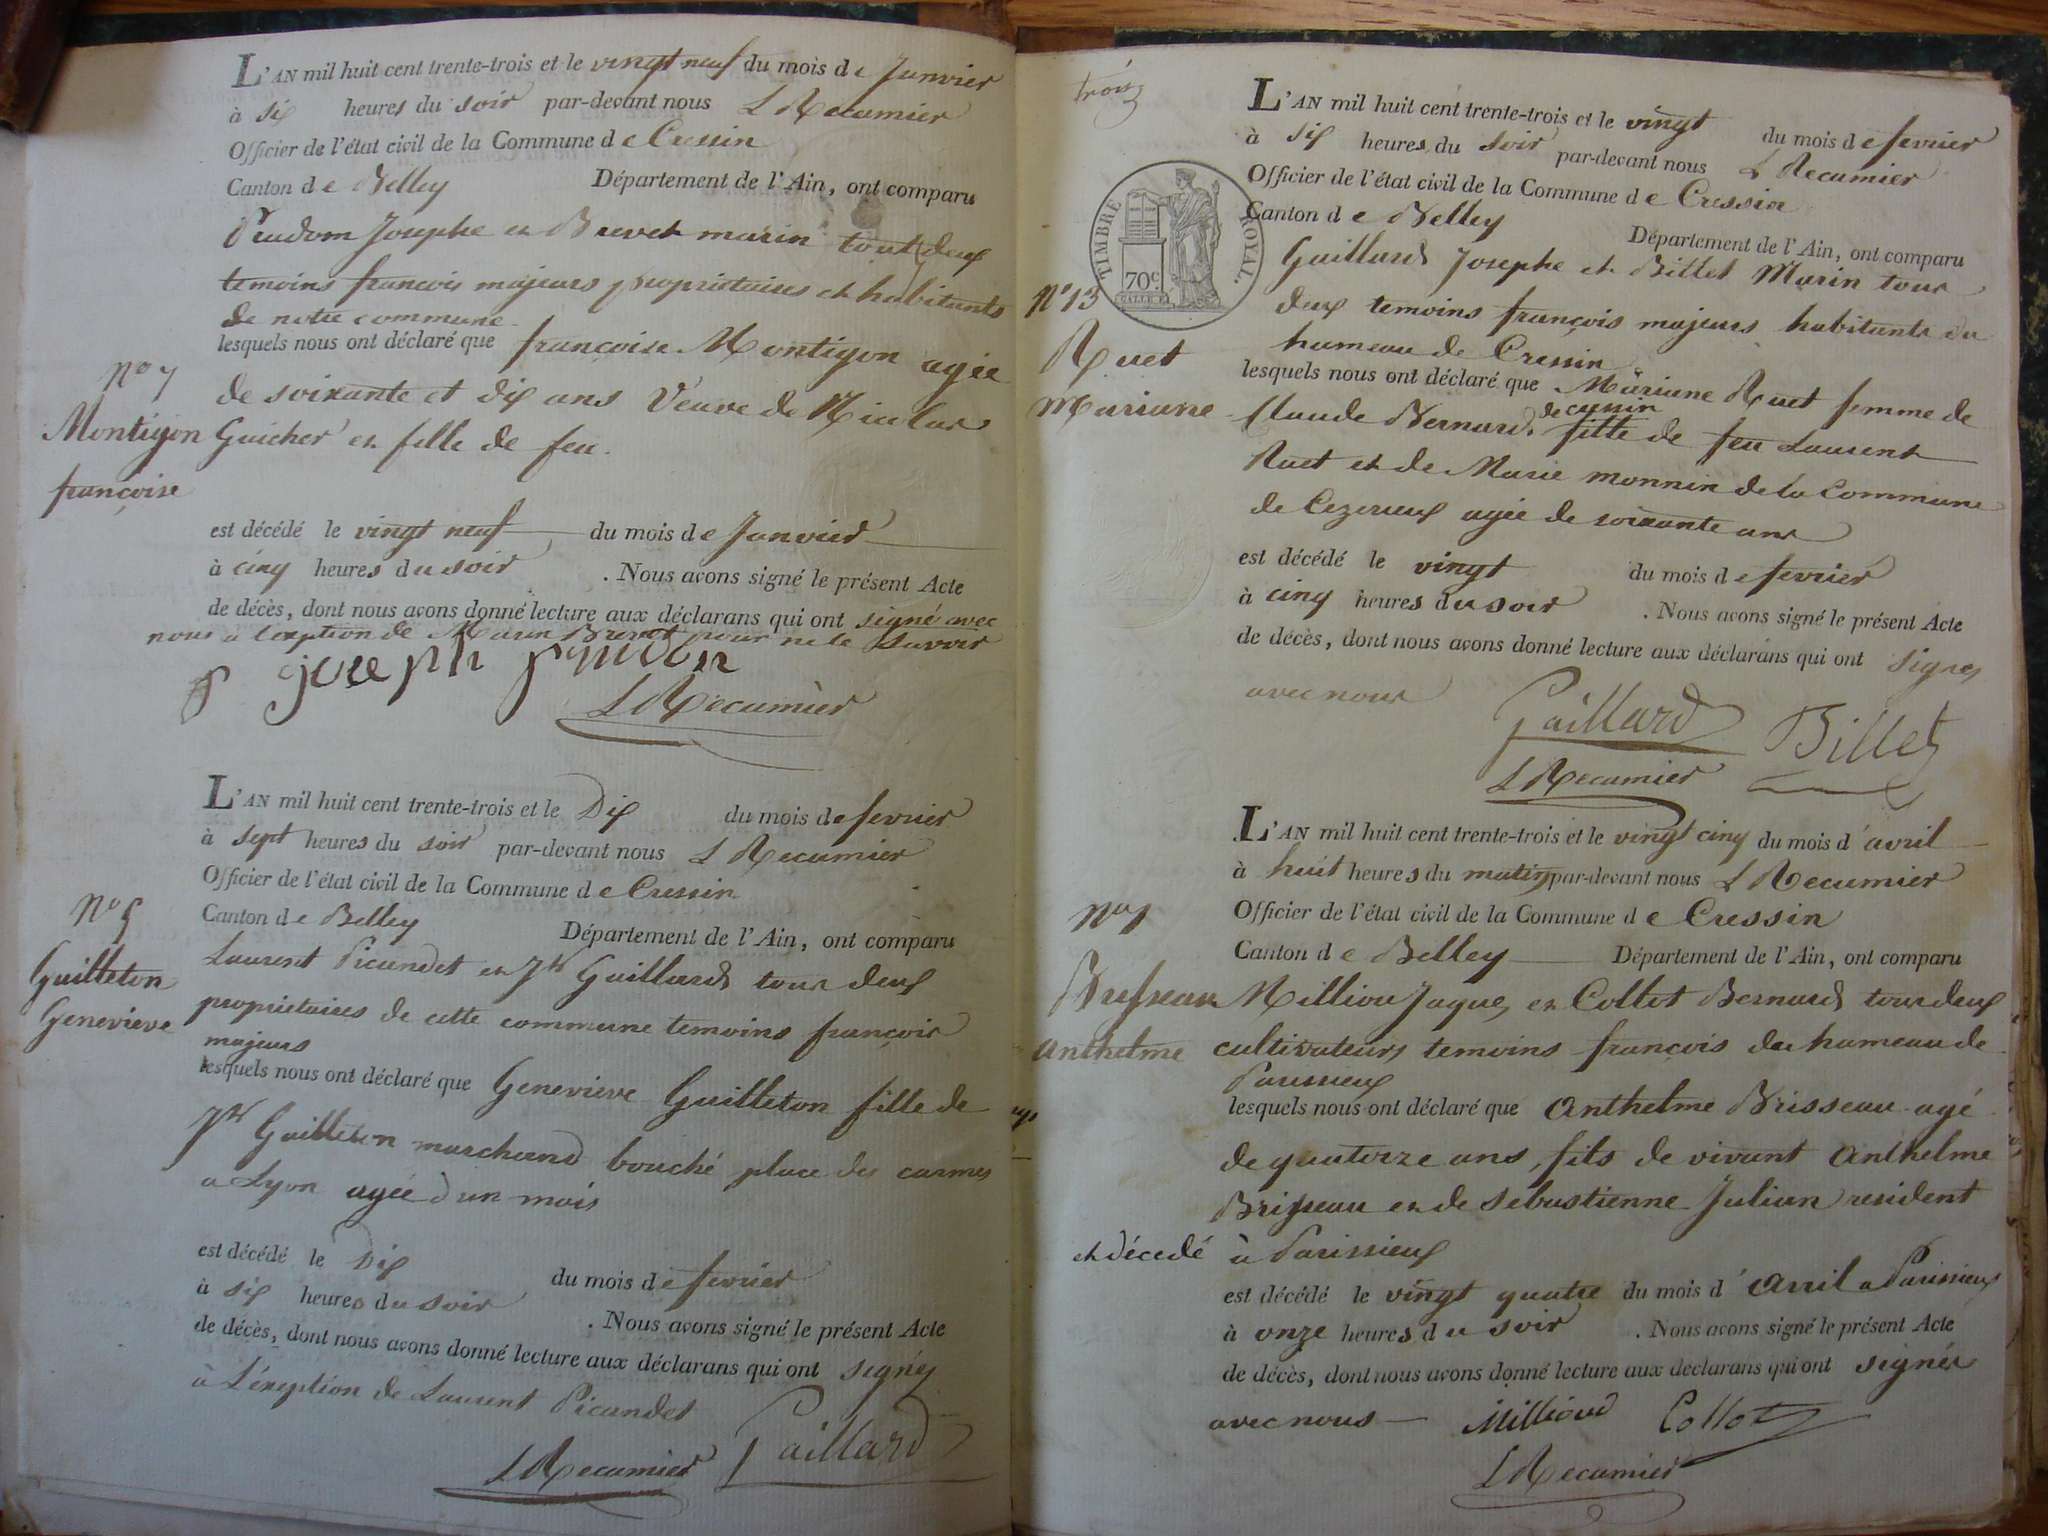 L'AN mil huit cent trente-trois et le vingt neuf du mois de Janvier
à six heures du soir par-devant nous L Recamier
Officier de l'état civil de la Commune de Cressin
Canton de Belley Département de l'Ain, ont comparu
Prudom Josephe et Brevet marin tout deux
temoins francois majeurs proprietaires et habitants
de notre commune
lesquels nous ont déclaré que françoise Montigon agée
de soixante et dix ans Veuve de Nicolas
Guicher et fille de feu.
No 7
Montigon
françoise
est décédé le vingt neuf du mois de Janvier
à cinq heures du soir . Nous avons signé le présent Acte
de décès, dont nous avons donné lecture aux déclarans qui ont signé avec
nous a l'exption de Marin Brevet pour ne le savoir
joseph
L Recamier
L'AN mil huit cent trente-trois et le Dix du mois de fevrier
à sept heures du soir par-devant nous L Recamier
Officier de l'état civil de la Commune de Cressin
Canton de Belley Département de l'Ain, ont comparu
Laurent Picandet et Jh Gaillard tous deux
proprietaires de cette commune temoins françois
majeurs
No
Guilleton
Genevieve
lesquels nous ont déclaré que Genevieve Guilleton fille de
Jh Guilleton marchand bouché place des carmes
a Lyon agée d'un mois
est décédé le Dix du mois de fevrier
à six heures du soir . Nous avons signé le présent Acte
de décès, dont nous avons donné lecture aux déclarans qui ont signés
à l'éxeption de Laurent Picandet
L Recamier Gaillard
trois
TIMBRE ROYAL.
70c
L'AN mil huit cent trente-trois et le vingt du mois de fevrier
à six heures du soir par-devant nous L Recamier
Officier de l'état civil de la Commune de Cressin
Canton de Belley Département de l'Ain, ont comparu
Gaillard Josephe et Billet Marin tous
deux temoins françois majeurs habitants du
hameau de Cressin
No 13
Ruet
Mariane
lesquels nous ont déclaré que Mariane Ruet femme de
Claude Bernard de cressin fille de feu Laurent
Ruet et de Marie monnin de la Commune
de Cezerieux agée de soixante ans
est décédé le vingt du mois de fevrier
à cinq heures du soir . Nous avons signé le présent Acte
de décès, dont nous avons donné lecture aux déclarans qui ont signes
avec nous
Gaillard Billet
L Recamier
L'AN mil huit cent trente-trois et le vingt cinq du mois d'avril
à huit heures du matin par-devant nous L Recamier
Officier de l'état civil de la Commune de Cressin
Canton de Belley Département de l'Ain, ont comparu
Milliou Jaques et Collot Bernard tous deux
cultivateurs temoins françois du hameau de
Parissieux
Anthelme
lesquels nous ont déclaré que Anthelme Brisseau agé
de quatorze ans, fils de vivant Anthelme
Brisseau et de sebastienne Julian resident
et décedé à Parissieux
est décédé le vingt quatre du mois d'Avril a Parissieux
à onze heures du soir . Nous avons signé le présent Acte
de décès, dont nous avons donné lecture aux déclarans qui ont signés
avec nous Millioud Collot
L Recamier